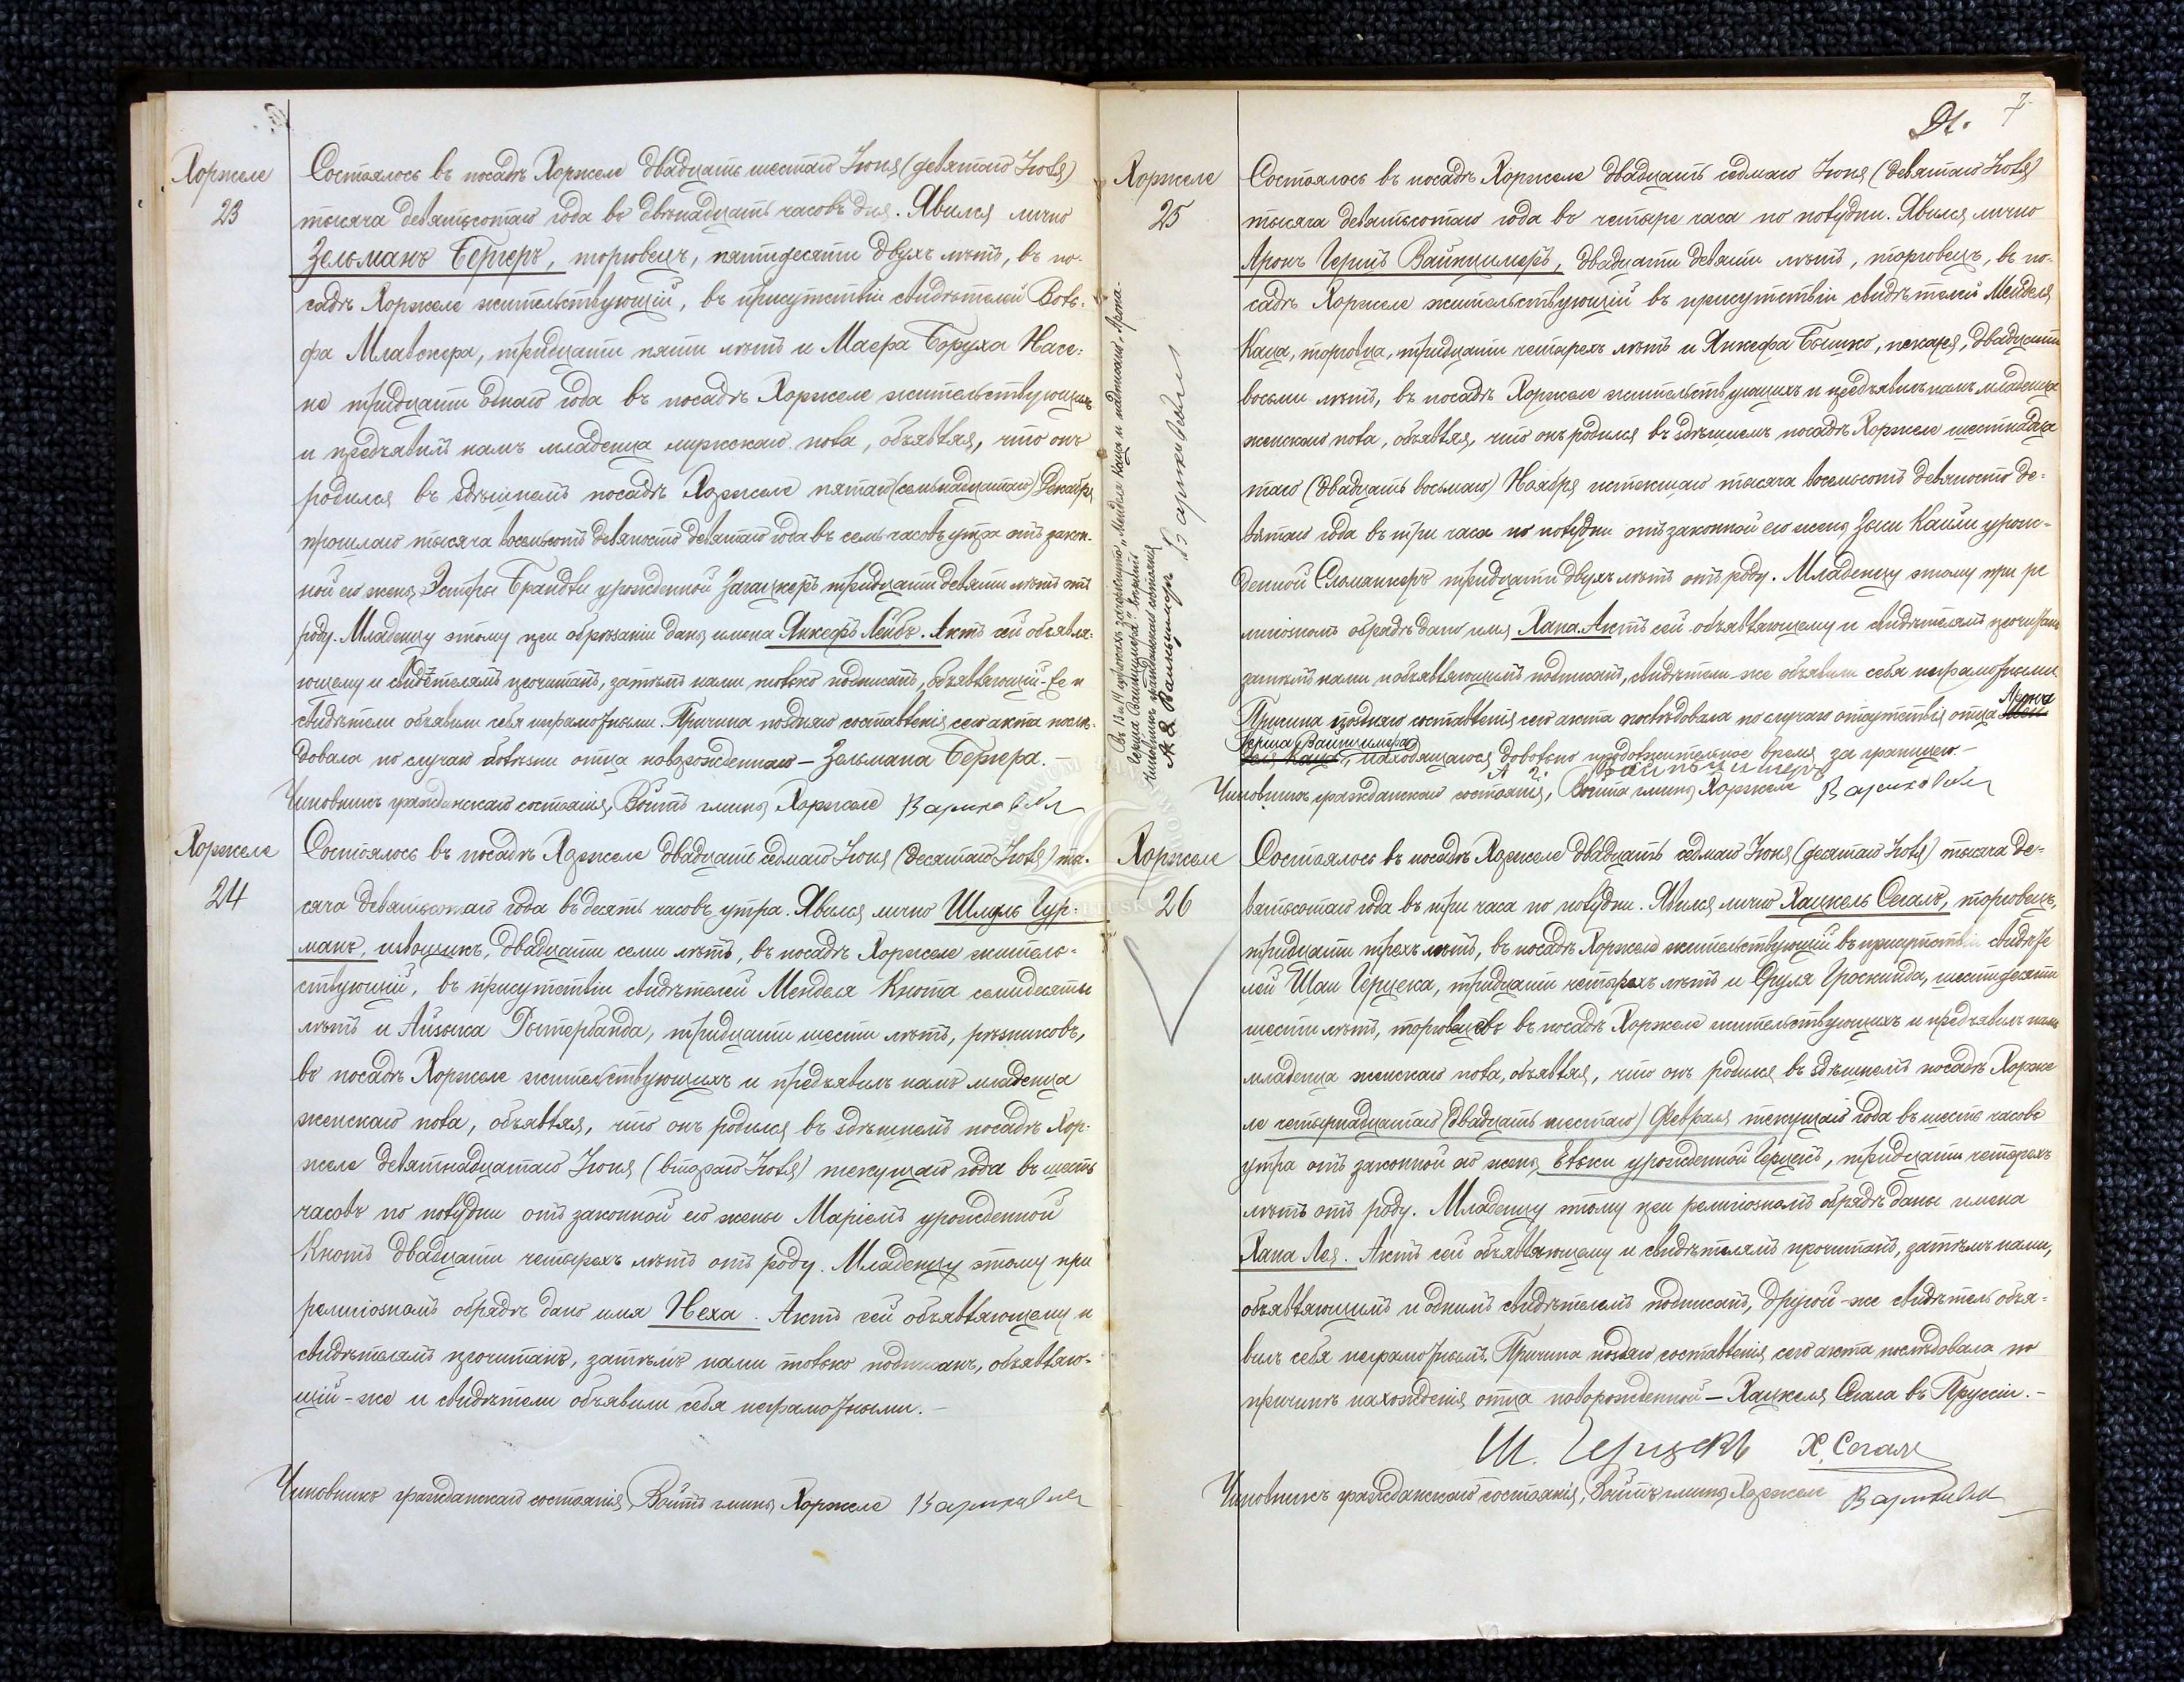 Хоржеле
23
Состоялось въ посадѣ Хоржеле двадцать шестаго Іюня (девятаго Іюля)
тысяча девятьсотаго года въ двѣнадцать часовъ дня. Явился лично
Зельманъ Бергеръ, торговецъ, пятидесяти двухъ лѣтъ, въ по-
садѣ Хоржеле жительствующій, въ присутствіи свидѣтелей Воль-
фа Млавскера, тридцати пяти лѣтъ и Маера Боруха Насе-
не тридцати однаго года въ посадѣ Хоржеле жительствующихъ
и предъявилъ намъ младенца мужскаго пола, объявляя, что онъ
родился въ здѣшнемъ посадѣ Хоржеле пятаго (семнадцатаго) Декабря
прошлаго тысяча восемьсотъ девяносто девятаго года въ семь часовъ утра отъ закон-
ной его жены Эстеры Брандли урожденной Загацкеръ тридцати девяти лѣтъ отъ
роду. Младенцу этому при обрѣзаніи даны имена Янкефъ Лейбъ. Актъ сей объявля-
ющему и свидѣтелямъ прочитанъ, затѣмъ нами только подписанъ, объявляющій-же и
свидѣтели объявили себя неграмотными. Причина поздняго составленія сего акта послѣ-
довала по случаю болѣзни отца новорожденнаго — Зельмана Бергера. —
Чиновникъ гражданскаго состоянія, Войтъ гмины Хоржеле
Хоржеле
24
Состоялось въ посадѣ Хоржеле двадцать седмаго Іюня (десятаго Іюля) ты-
сяча девятьсотаго года въ десять часовъ утра. Явился лично Шмуль Гур-
манъ, извощикъ, двадцати семи лѣтъ, въ посадѣ Хоржеле житель-
ствующій, въ присутствіи свидѣтелей Менделя Кнота семидесяти
лѣтъ и Айзыка Ростербанда, тридцати шести лѣтъ, рѣзниковъ,
въ посадѣ Хоржеле жительствующихъ и предъявилъ намъ младенца
женскаго пола, объявляя, что онъ родился въ здѣшнемъ посадѣ Хор-
желе девятнадцатаго Іюня (втораго Іюля) текущаго года въ шесть
часовъ по полудни отъ законной его жены Маріемъ урожденной
Кнотъ двадцати четырехъ лѣтъ отъ роду. Младенцу этому при
религіозномъ обрядѣ дано имя Неха. Актъ сей объявляющему и
свидѣтелямъ прочитанъ, затѣмъ нами только подписанъ, объявляю-
щій-же и свидѣтели объявили себя неграмотными. —
Чиновникъ гражданскаго состоянія, Войтъ гмины Хоржеле
7
Хоржеле
25
Состоялось въ посадѣ Хоржеле двадцать седмаго Іюня (девятаго Іюля)
тысяча девятьсотаго года въ четыре часа по полудни. Явился лично
Аронъ Гершъ Вайнцимеръ, двадцати девяти лѣтъ, торговецъ, въ по-
садѣ Хоржеле жительствующій въ присутствіи свидѣтелей Менделя
Каца, торговца, тридцати четырехъ лѣтъ и Янкефа Бышко, пекаря, двадцати
восьми лѣтъ, въ посадѣ Хоржеле жительствующихъ и предъявилъ намъ младенца
женскаго пола, объявляя, что онъ родился въ здѣшнемъ посадѣ Хоржеле шестнадца
таго (двадцать восьмаго) Ноября истекшаго тысяча восемьсотъ девяносто де-
вятаго года въ три часа по полудни отъ законной его жены Зыси Кайли урож-
денной Сломянкеръ тридцати двухъ лѣтъ отъ роду. Младенцу этому при ре
лигіозномъ обрядѣ дано имя Хана. Актъ сей объявляющему и свидѣтелямъ прочитанъ
затѣмъ нами и объявляющимъ подписанъ, свидѣтели-же объявили себя неграмотными
Причина поздняго составленія сего акта послѣдовала по случаю отсутствія отца Арона
Герша Вайнцимера, находящагося довольно продолжительное время за границею —
А Г. Вайнцимеръ
Чиновникъ гражданскаго состоянія, Войтъ гмины Хоржеле
Въ 13 и 14 строкахъ зачеркнуто „Менделя Каца" и надписано „Арона
Герша Вайнцимера" вѣрно
Чиновникъ гражданскаго состоянія
А Г Вайнцимеръ
Хоржеле
26
Состоялось въ посадѣ Хоржеле двадцать седмаго Іюня (десятаго Іюля) тысяча де-
вятьсотаго года въ три часа по полудни. Явился лично Хацкель Сегалъ, торговецъ,
тридцати трехъ лѣтъ, въ посадѣ Хоржеле жительствующій въ присутствіи свидѣте
лей Шаи Герцека, тридцати четырехъ лѣтъ и Сруля Гроскинда, шестидесяти
шести лѣтъ, торговцевъ въ посадѣ Хоржеле жительствующихъ и предъявилъ намъ
младенца женскаго пола, объявляя, что онъ родился въ здѣшнемъ посадѣ Хорже
ле четырнадцатаго (двадцать шестаго) Февраля текущаго года въ шесть часовъ
утра отъ законной его жены Блюки урожденной Герцекъ, тридцати четырехъ
лѣтъ отъ роду. Младенцу этому при религіозномъ обрядѣ даны имена
Хана Лея. Актъ сей объявляющему и свидѣтелямъ прочитанъ, затѣмъ нами,
объявляющимъ и однимъ свидѣтелемъ подписанъ, другой-же свидѣтель объя-
вилъ себя неграмотнымъ. Причина поздняго составленія сего акта послѣдовала по
причинѣ нахожденія отца новорожденной — Хацкеля Сегала въ Пруссіи. —
Ш. Герцекъ Х. Сегалъ
Чиновникъ гражданскаго состоянія, Войтъ гмины Хоржеле